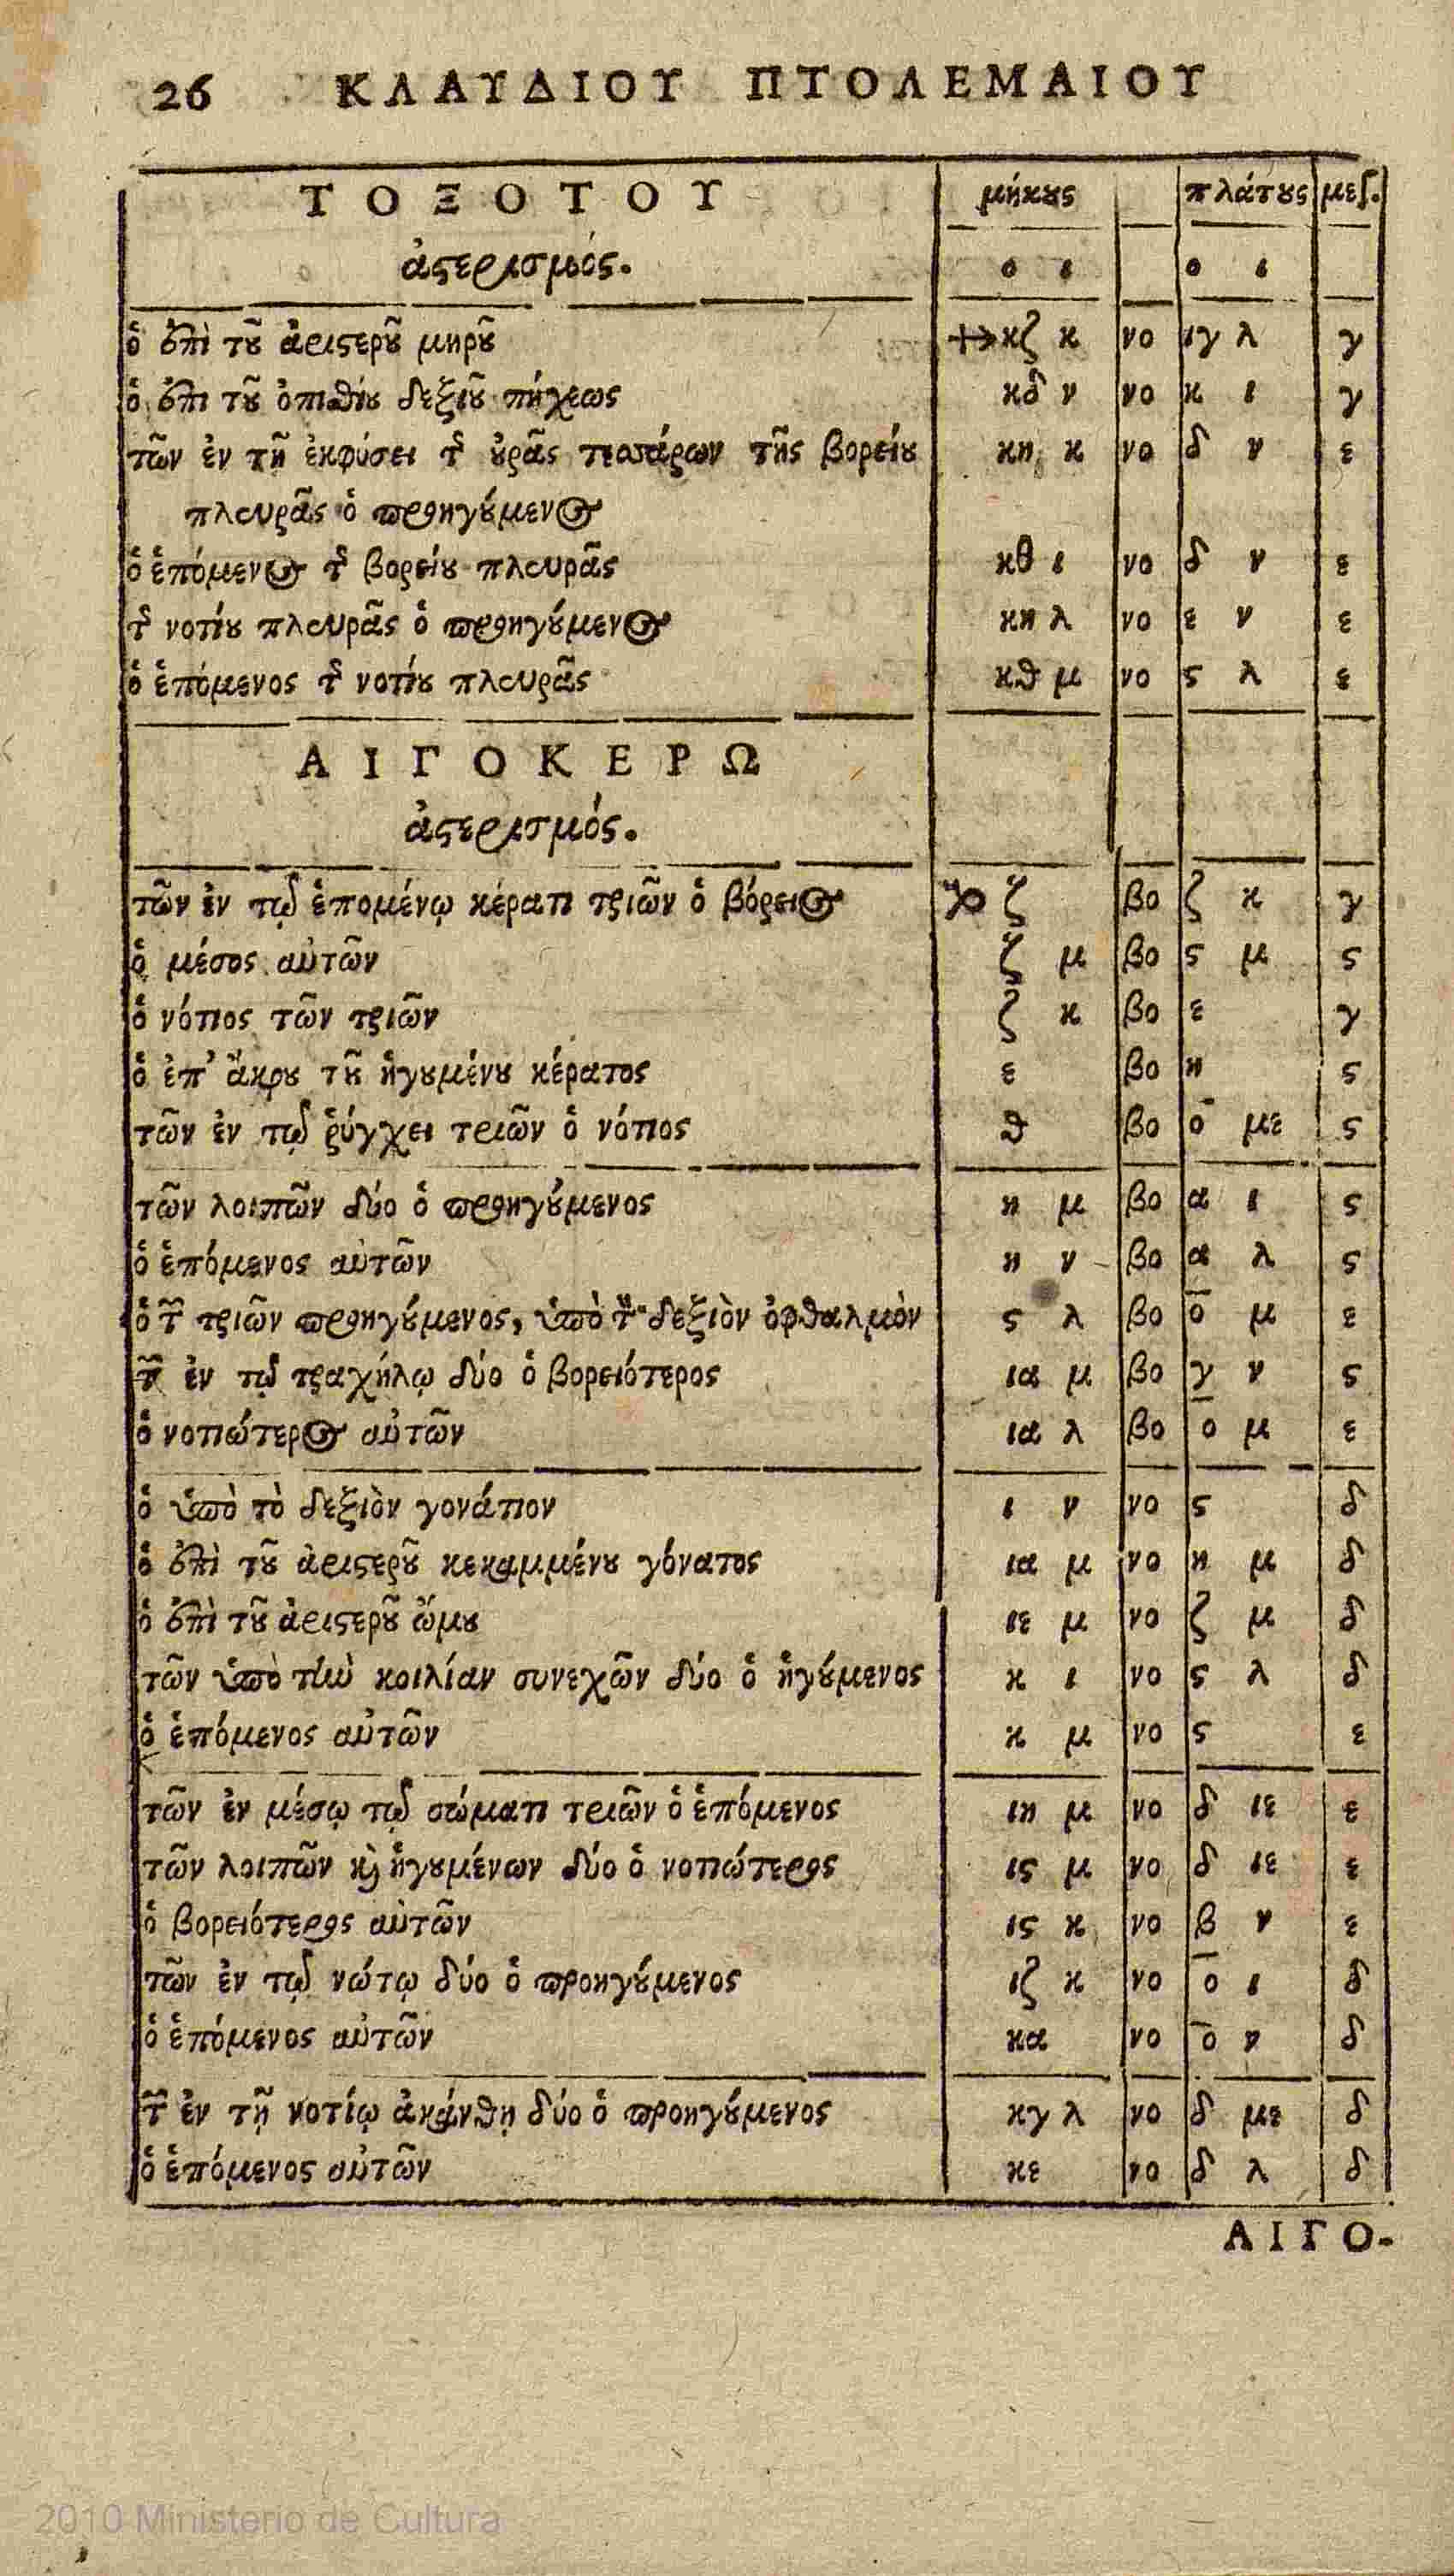 26 ΚΛΑΥΔΙΟΥ ΠΤΟΛΕΜΑΙΟΥ
ΤΟΞΟΤΟΥ μήκους πλάτους μεγ.
ἀστερισμός. ο ι ο ι
ὁ ἐπὶ τοῦ ἀριστεροῦ μηροῦ ♐ κζ κ νο ιγ λ γ
ὁ ἐπι τοῦ ὀπιθίου δεξιοῦ πήχεως κδ ν νο κ ι γ
τῶν ἐν τῇ ἐκφύσει τῆς οὐρᾶς τεσσάρων τῆς βορείου κη κ νο δ ν ε
πλευρᾶς ὁ προηγούμενος
ὁ ἑπόμενος τῆς βορείου πλευρᾶς κθ ι νο δ ν ε
τῆς νοτίου πλευρᾶς ὁ προηγούμενος κη λ νο ε ν ε
ὁ ἑπόμενος τῆς νοτίου πλευρᾶς κθ μ νο ς λ ε
ΑΙΓΟΚΕΡΩ
ἀστερισμός.
τῶν ἐν τῷ ἑπομένῳ κέρατι τριῶν ὁ βόρειος ♑ ζ βο ζ κ γ
ὁ μέσος αὐτῶν ζ μ βο ς μ ς
ὁ νότιος τῶν τριῶν ζ κ βο ε γ
ὁ ἐπ' ἄκρου τοῦ ἡγουμένου κέρατος ε βο η ς
τῶν ἐν τῷ ῥύγχει τριῶν ὁ νότιος θ βο ο̄ με ς
τῶν λοιπῶν δύο ὁ προηγούμενος η μ βο α ι ς
ὁ ἑπόμενος αὐτῶν η ν βο α λ ς
ὁ τῶν τριῶν προηγούμενος, ὑπὸ τὸν δεξιὸν ὀφθαλμὸν ς λ βο ο̄ μ ε
τῶν ἐν τῷ τραχήλῳ δύο ὁ βορειότερος ια μ βο γ ν ς
ὁ νοτιώτερος αὐτῶν ια λ βο ο̄ μ ε
ὁ ὑπὸ τὸ δεξιὸν γονάτιον ι ν νο ς δ
ὁ ἐπὶ τοῦ ἀριστεροῦ κεκαμμένου γόνατος ια μ νο η μ δ
ὁ ἐπὶ τοῦ ἀριστεροῦ ὤμου ιε μ νο ζ μ δ
τῶν ὑπὸ τὴν κοιλίαν συνεχῶν δύο ὁ ἡγούμενος κ ι νο ς λ δ
ὁ ἑπόμενος αὐτῶν κ μ νο ς ε
τῶν ἐν μέσῳ τῷ σώματι τριῶν ὁ ἑπόμενος ιη μ νο δ ιε ε
τῶν λοιπῶν καὶ ἡγουμένων δύο ὁ νοτιώτερος ις μ νο δ ιε ε
ὁ βορειότερος αὐτῶν ις κ νο β ν ε
τῶν ἐν τῷ νώτῳ δύο ὁ προηγούμενος ιζ κ νο ο̄ ι δ
ὁ ἑπόμενος αὐτῶν κα νο ο̄ ν δ
τῶν ἐν τῇ νοτίῳ ἀκάνθῃ δύο ὁ προηγούμενος κγ λ νο δ με δ
ὁ ἑπόμενος αὐτῶν κε νο δ λ δ
ΑΙΓΟ-
2010 Ministerio de Cultura